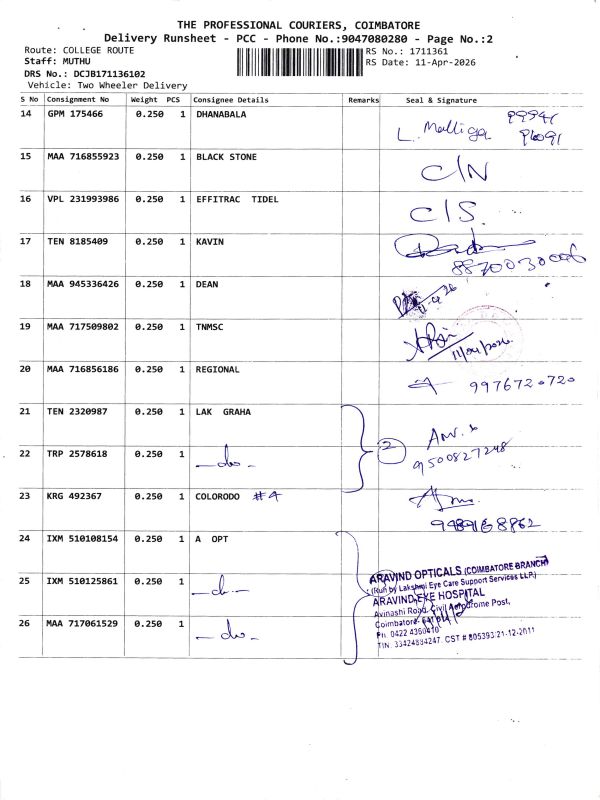 THE PROFESSIONAL COURIERS, COIMBATORE
Delivery Runsheet - PCC - Phone No.:9047080280 - Page No.:2
Route: COLLEGE ROUTE
RS No.: 1711361
Staff: MUTHU
RS Date: 11-Apr-2026
DRS No.: DCJB171136102
Vehicle: Two Wheeler Delivery
S No Consignment No Weight PCS Consignee Details Remarks Seal & Signature
14 GPM 175466 0.250 1 DHANABALA L. Malliga
15 MAA 716855923 0.250 1 BLACK STONE C/N
16 VPL 231993986 0.250 1 EFFITRAC TIDEL C/S
17 TEN 8185409 0.250 1 KAVIN
18 MAA 945336426 0.250 1 DEAN
19 MAA 717509802 0.250 1 TNMSC 11/04/2026
20 MAA 716856186 0.250 1 REGIONAL 9976720720
21 TEN 2320987 0.250 1 LAK GRAHA
22 TRP 2578618 0.250 1 -do- 2 9500827248
23 KRG 492367 0.250 1 COLORODO #4
24 IXM 510108154 0.250 1 A OPT
25 IXM 510125861 0.250 1 -do-
26 MAA 717061529 0.250 1 -do-
ARAVIND OPTICALS (COIMBATORE BRANCH)
(Run by Lakshmi Eye Care Support Services LLP.)
ARAVIND EYE HOSPITAL
Avinashi Road, Civil Aerodrome Post,
Coimbatore-
Ph. 0422 4360410
TIN. 33424884247. CST # 805393/21-12-2011